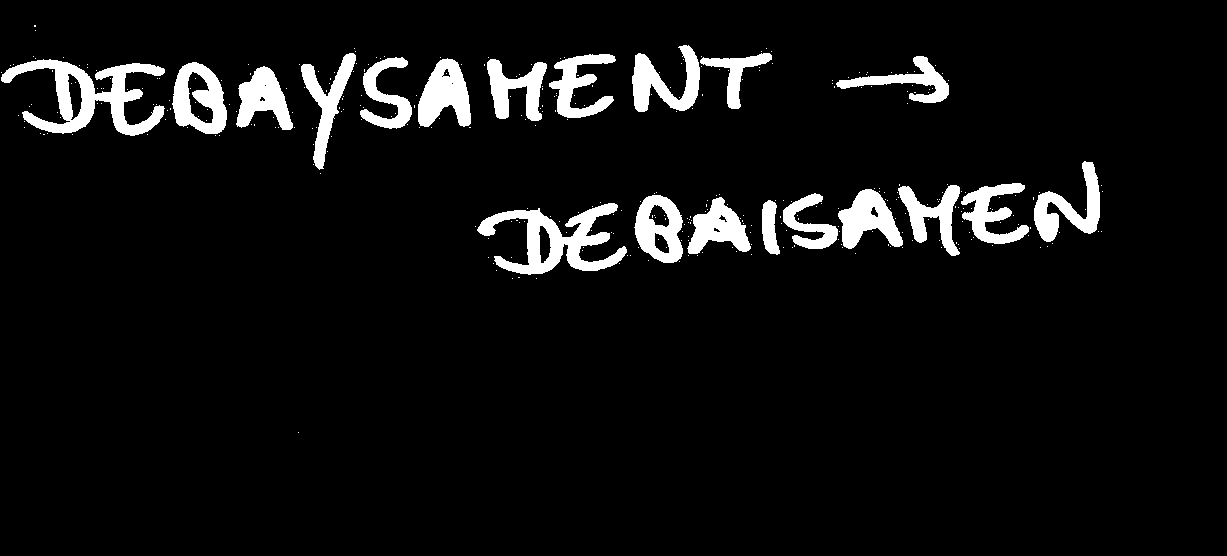 DEBAYSAMENT →
DEBAISAMEN